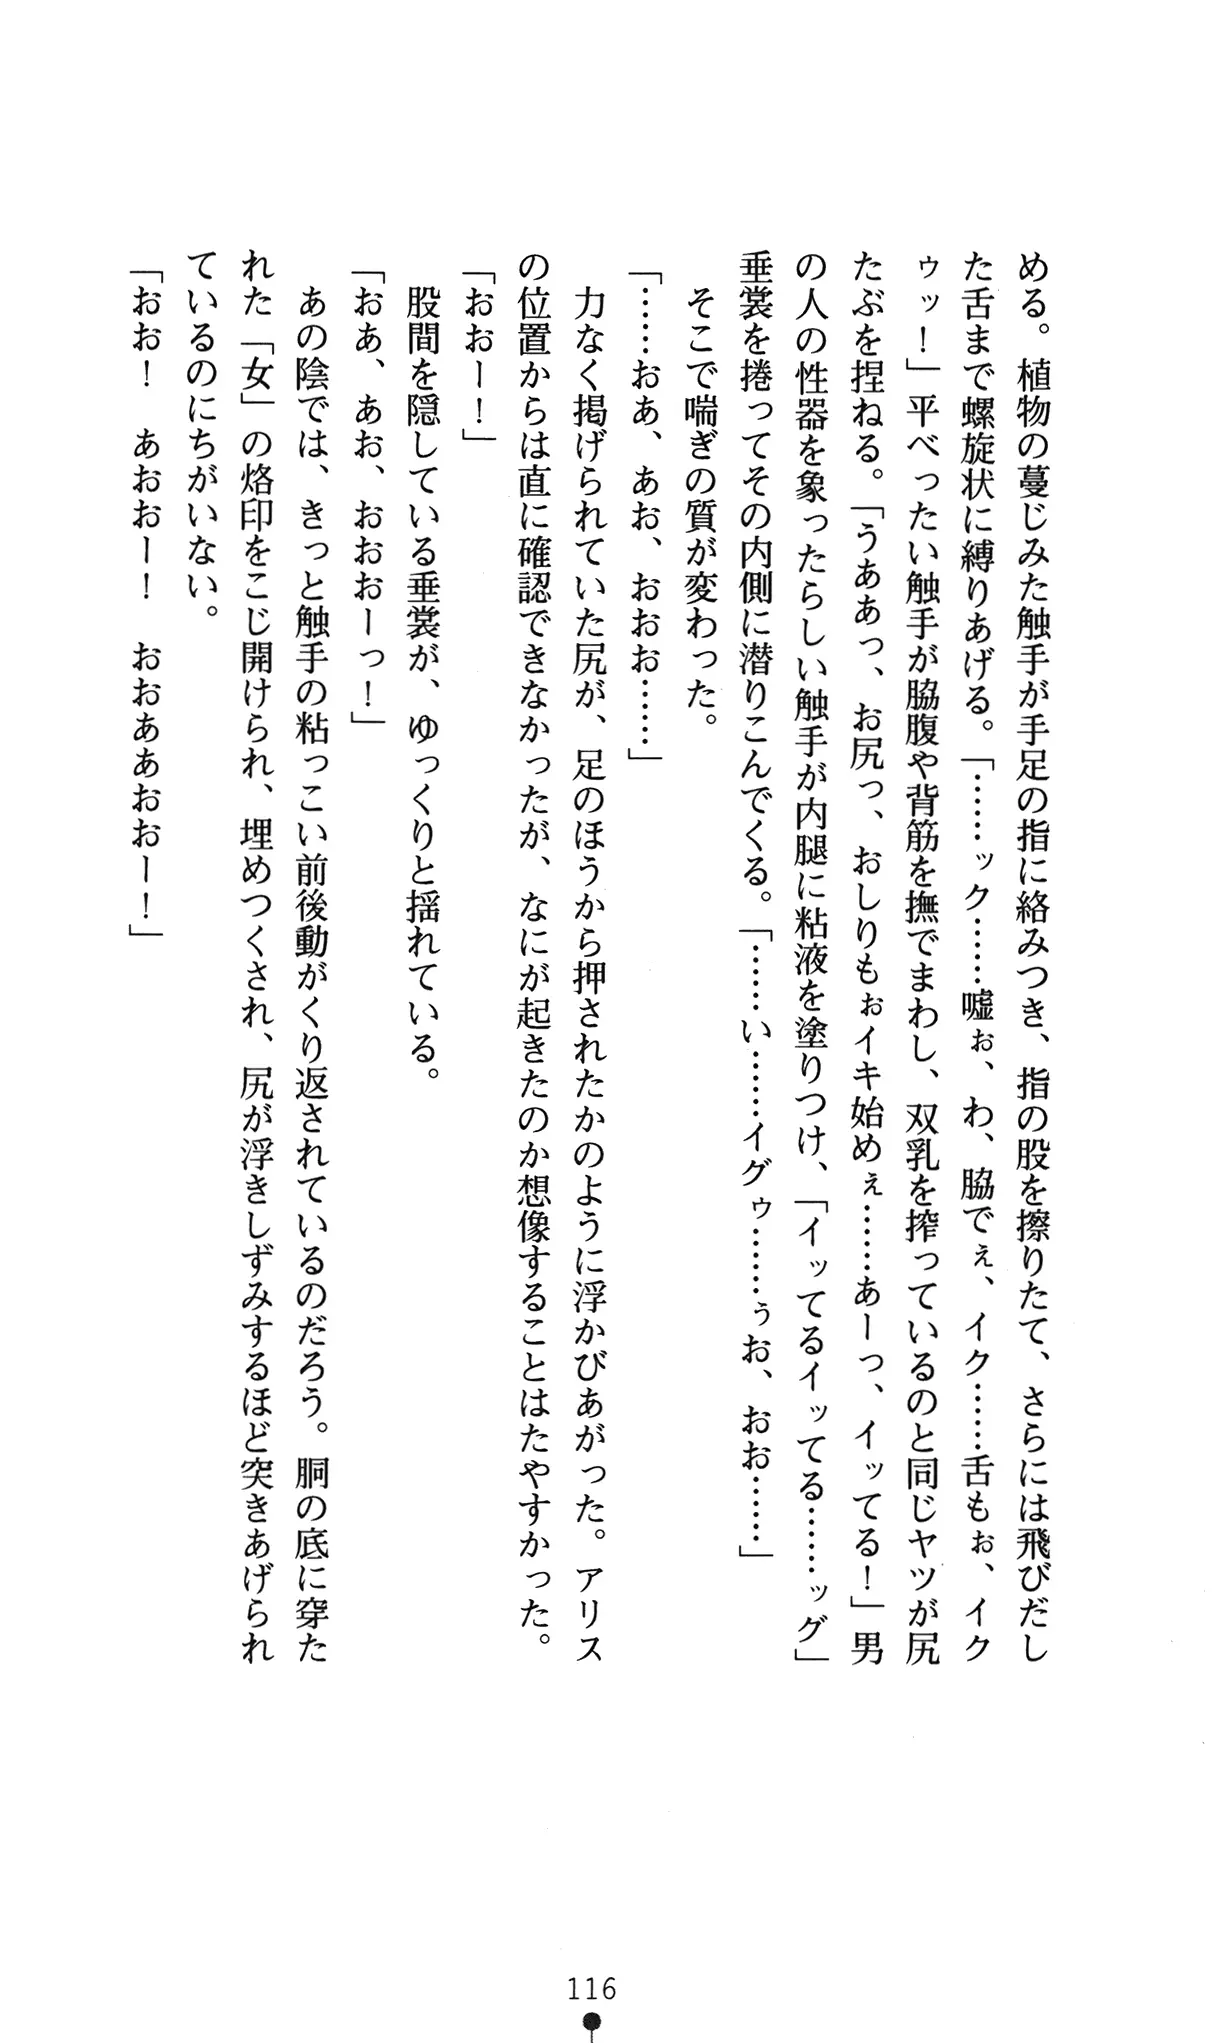 める。植物の蔓じみた触手が手足の指に絡みつき、指の股を擦りたて、さらには飛びだし
た舌まで螺旋状に縛りあげる。「……ック……嘘ぉ、わ、脇でぇ、イク……舌もぉ、イク
ゥッ！」平べったい触手が脇腹や背筋を撫でまわし、双乳を搾っているのと同じヤツが尻
たぶを捏ねる。「うああっ、お尻っ、おしりもぉイキ始めぇ……あーっ、イッてる！」男
の人の性器を象ったらしい触手が内腿に粘液を塗りつけ、「イッてるイッてる……ッグ」
垂裳を捲ってその内側に潜りこんでくる。「……い……イグゥ……ぅお、おお……」
そこで喘ぎの質が変わった。
「……おぁ、あお、おおお……」
力なく掲げられていた尻が、足のほうから押されたかのように浮かびあがった。アリス
の位置からは直に確認できなかったが、なにが起きたのか想像することはたやすかった。
「おおー！」
股間を隠している垂裳が、ゆっくりと揺れている。
「おぁ、あお、おおおーっ！」
あの陰では、きっと触手の粘っこい前後動がくり返されているのだろう。胴の底に穿た
れた「女」の烙印をこじ開けられ、埋めつくされ、尻が浮きしずみするほど突きあげられ
ているのにちがいない。
「おお！　あおおー！　おおああおおー！」
116